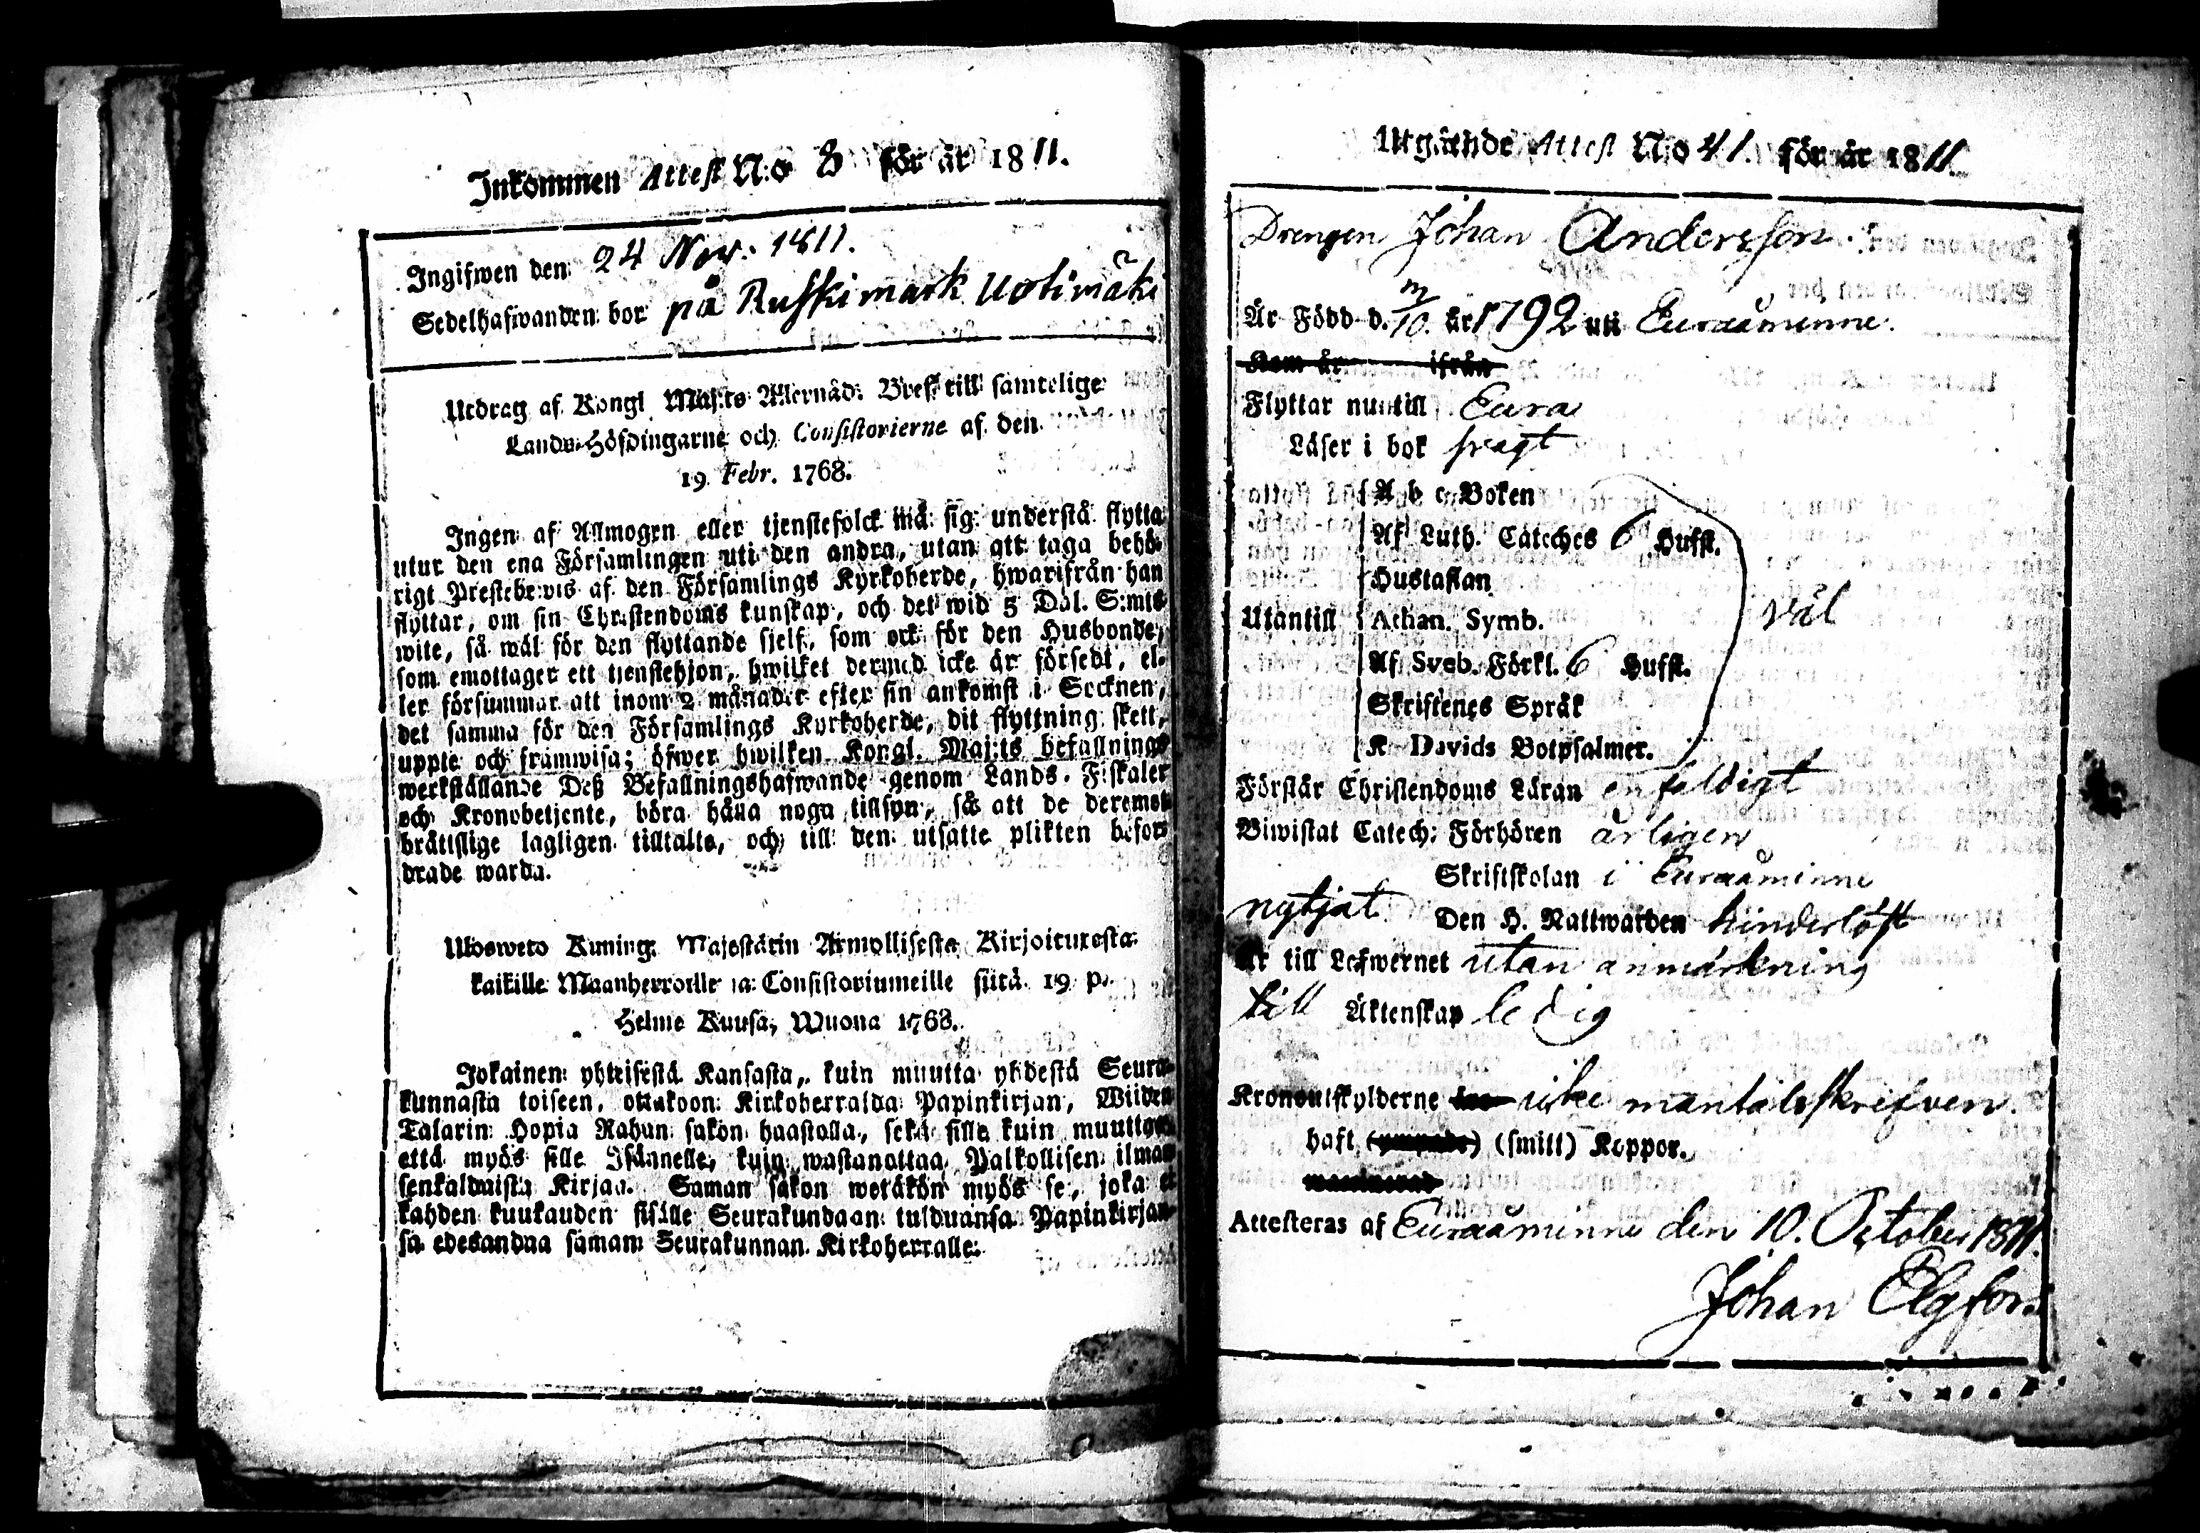 Inkommen Attest N:o 8 för år 1811.
Ingifwen den 24 Nov: 1811.
Sedelhafwanden bor på Russkimark Uotimäki
Utdrag af Kongl Maj:ts Allernåd: Bref till samtelige
Lands-Höfdingarne och Consistorierne af den
19 Febr. 1768.
Ingen af Allmogen eller tjenstefolck må sig understå flytta
utur den ena Församlingen uti den andra, utan att taga behö-
rigt Prestebewis af den Församlings Kyrkoherde, hwarifrån han
flyttar, om sin Christendoms kunskap, och det wid 5 Dal. S:mts
wite, så wäl för den flyttande sjelf, som ock för den Husbonde,
som emottager ett tienstehjon, hwilket dermed icke är försedt, el-
ler försummar att inom 2 månader efter sin ankomst i Socknen,
det samma för den Församlings Kyrkoherde, dit flyttning skett,
uppte och framwisa; öfwer hwilken Kongl. Maj:ts befallnings
werkställande Deß Befallningshafwande genom Lands-Fiskaler
och Kronobetjente, böra hålla noga tillsyn, så att de deremot
brätislige lagligen tilltalte, och till den utsatte plikten befor-
drade warda.
Ulosweto Kuning. Majestätin Armollisesta Kirjoituxesta
kaikille Maanherroille ja Consistoriumeille siitä 19 p.
Helme Kuusa, Wuona 1768.
Jokainen yhteisestä Kansasta, kuin muutta yhdestä Seura-
kunnasta toiseen, ottakoon Kirkoherralda Papinkirjan, Wiiden
Talarin Hopia Rahan sakon haastolla, sekä sille kuin muuttaa
että myös sille Isännelle, kuin wastanottaa Palkollisen ilman
senkaldaista Kirjaa. Saman sakon wetäkön myös se, joka ei
kahden kuukauden sisälle Seurakundaan tulduansa Papinkirjan-
sa edesandaa saman Seurakunnan Kirkoherralle.
Utgående Attest N:o 41. för år 1811.
Drengen Johan Andersson
Är Född d. /10. år 1792 uti Euraåminne.
Kom år ifrån
Flyttar nu till Eura
Läser i bok svagt
A b c Boken
Af Luth. Cateches 6 Hufst.
Hustaflan
Utantill Athan. Symb. väl
Af Sveb. Förkl. 6 Hufst.
Skriftenes Språk
K. Davids Botpsalmer.
Förstår Christendoms Läran enfaldigt
Biwistat Catech: Förhören årligen
Skriftskolan i Euraåminne
nytjat Den H. Nattwarden hinderlöst
Är till Lefwernet utan anmärkning
till Äktenskap ledig
Kronoutskylderne är icke mantalsskrifven.
haft (ympade) (smitt) Koppor.
Attesteras af Euraåminne den 10. October 1811.
Johan Elgfors